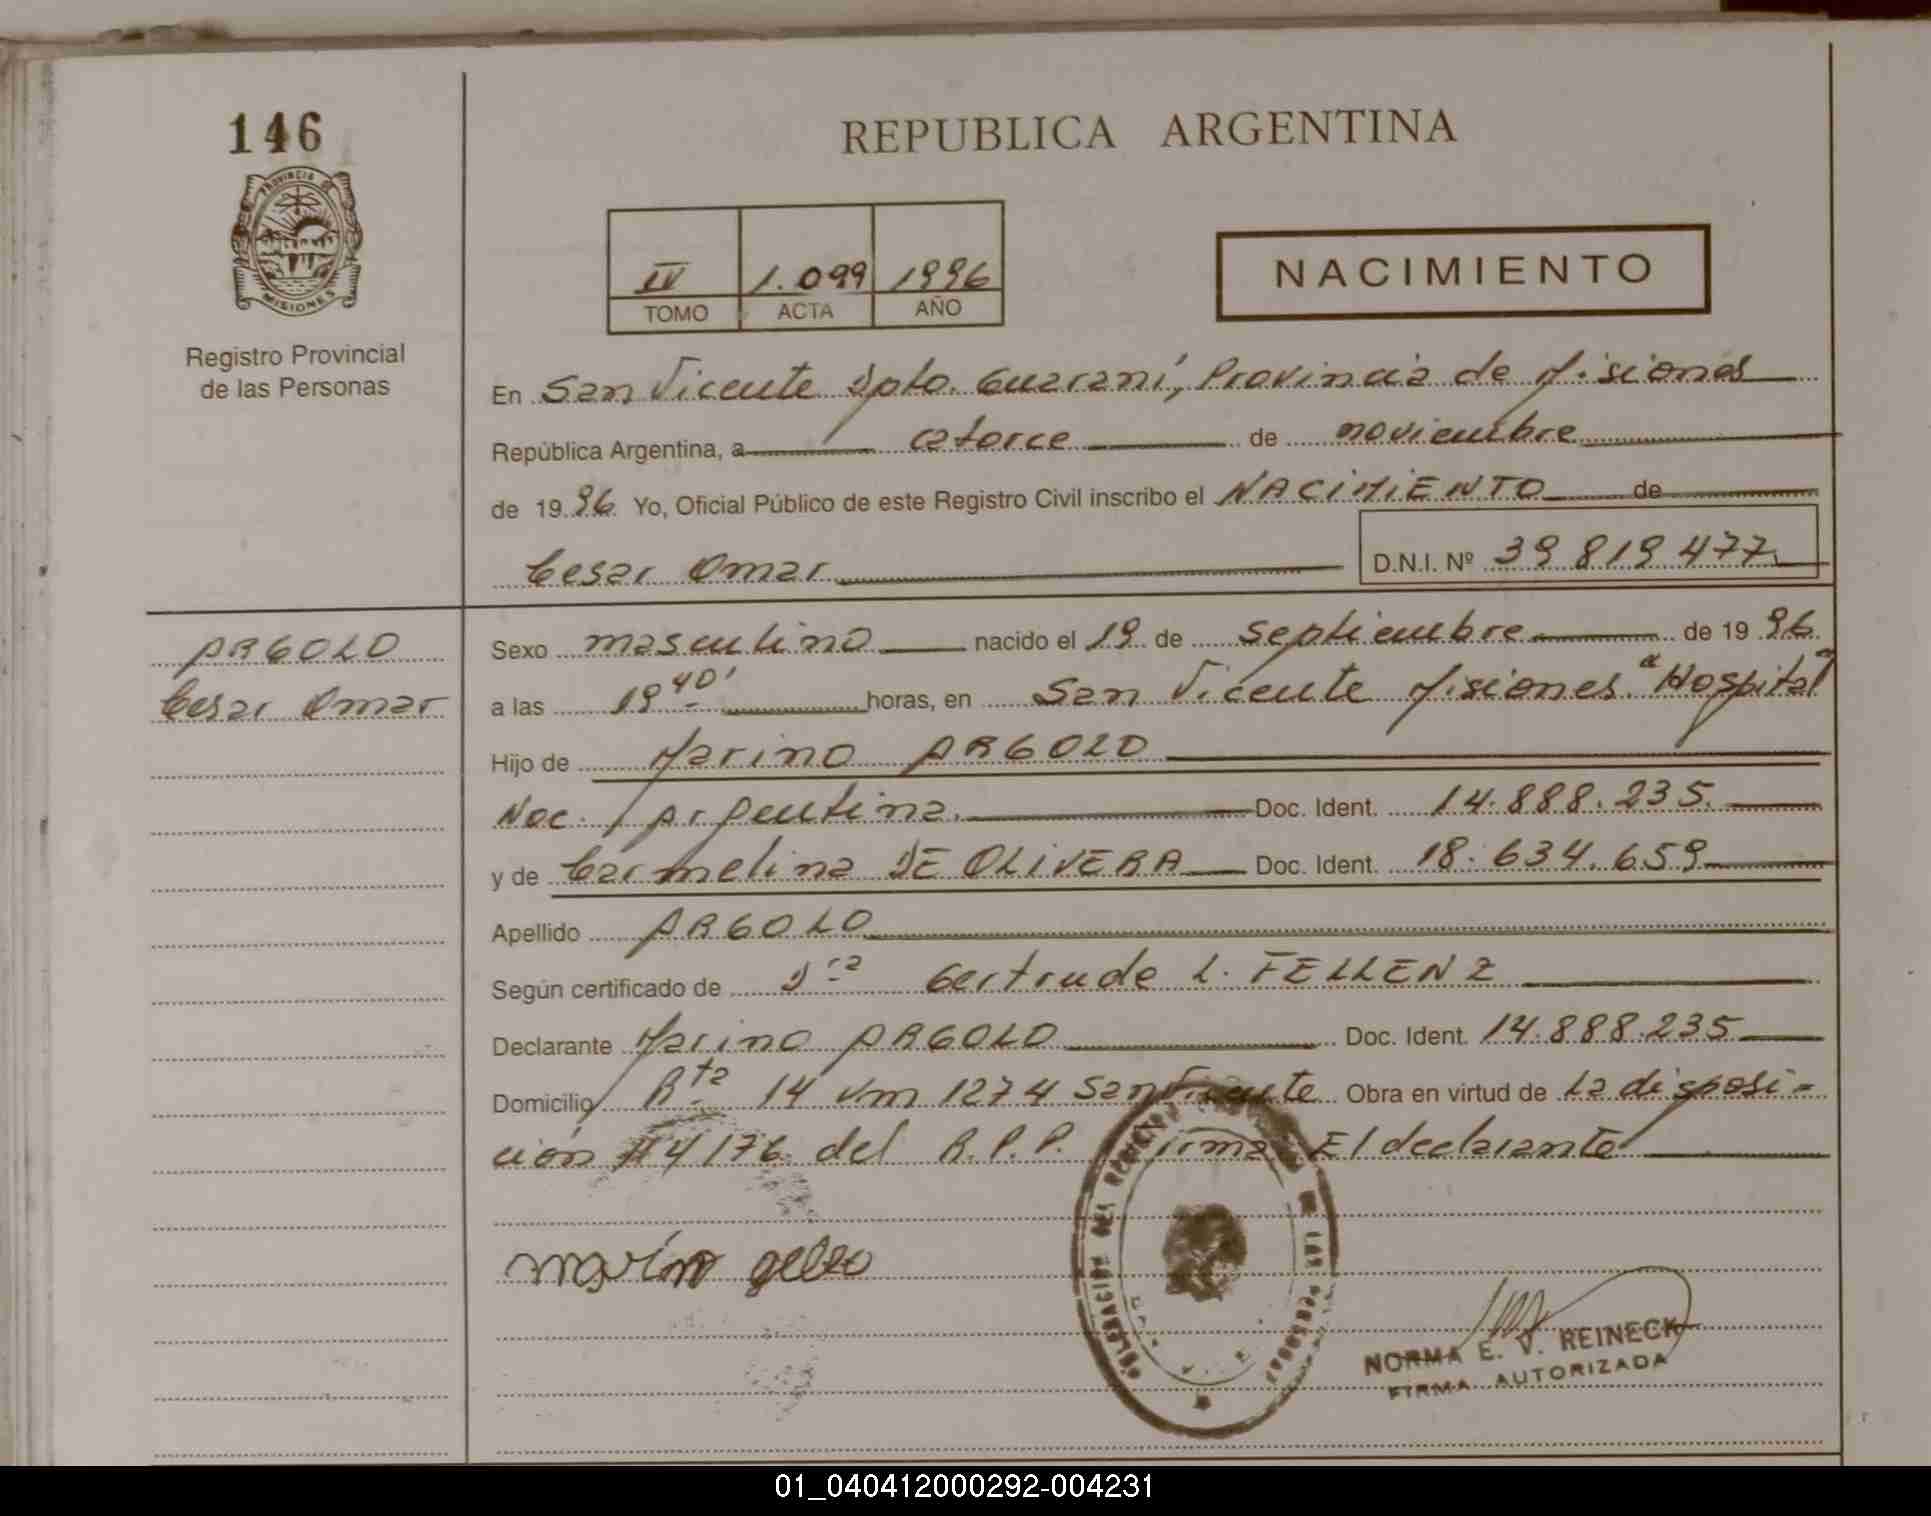 146
PROVINCIA DE
MISIONES
Registro Provincial
de las Personas
REPUBLICA ARGENTINA
IV 1.099 1996
TOMO ACTA AÑO
NACIMIENTO
En San Vicente Dpto. Guaraní, Provincia de Misiones
República Argentina, a catorce de noviembre
de 1996 Yo, Oficial Público de este Registro Civil inscribo el NACIMIENTO de
Cesar Omar D.N.I. Nº 39 819 477
ARGOLO
Cesar Omar
Sexo masculino nacido el 19 de septiembre de 1996
a las 19 40' horas, en San Vicente Misiones "Hospital"
Hijo de Marino ARGOLO
Nac. Argentina. Doc. Ident. 14.888.235.
y de Carmelina DE OLIVERA Doc. Ident. 18.634.659
Apellido ARGOLO
Según certificado de Dra Gertrude L. FELLENZ
Declarante Marino ARGOLO Doc. Ident. 14.888.235
Domicilio Rta 14 km 1274 San Vicente Obra en virtud de La disposi-
ción 114/76 del R.P.P. Firma El declarante
marino
DELEGACION DEL REGISTRO DE LAS PERSONAS
NORMA E. V. REINECK
FIRMA AUTORIZADA
01_040412000292-004231